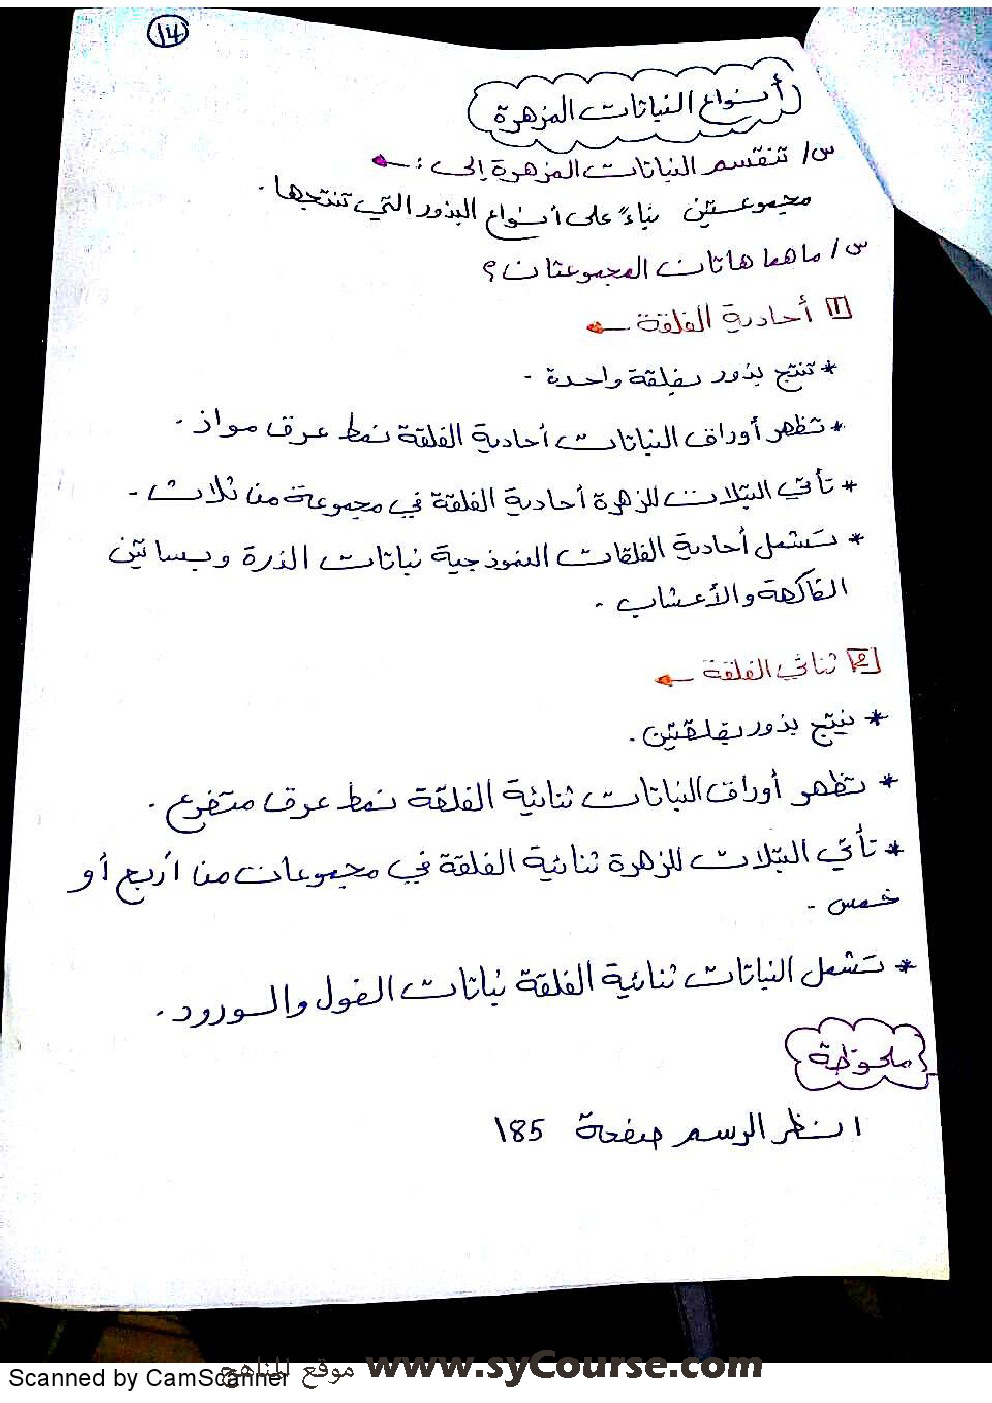 14
أنواع النباتات المزهرة
س/ تنقسم النباتات المزهرة إلى :
مجموعتين بناءً على أنواع البذور التي تنتجها .
س/ ما هما هاتان المجموعتان ؟
1 أحادية الفلقة
* تنتج بذور بفلقة واحدة .
* تظهر أوراق النباتات أحادية الفلقة نمط عرق مواز .
* تأتي البتلات للزهرة أحادية الفلقة في مجموعة من ثلاث .
* تشمل أحادية الفلقات النموذجية نباتات الذرة وبساتين
الفاكهة والأعشاب .
2 ثنائي الفلقة
* ينتج بذور بفلقتين .
* تظهر أوراق النباتات ثنائية الفلقة نمط عرق متفرع .
* تأتي البتلات للزهرة ثنائية الفلقة في مجموعات من أربع أو
خمس .
* تشمل النباتات ثنائية الفلقة نباتات الفول والورود .
ملحوظة
انظر الرسم صفحة 185
موقع المناهج www.syCourse.com
Scanned by CamScanner